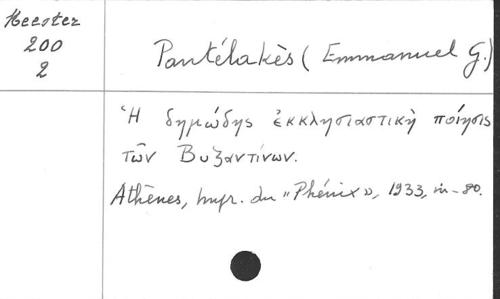 Heester
200
2
Pantélakès (Emmanuel G.)
Ἡ δημώδης ἐκκλησιαστικὴ ποίησις
τῶν Βυζαντίνων.
Athènes, Impr. du "Phénix", 1933, in-8o.